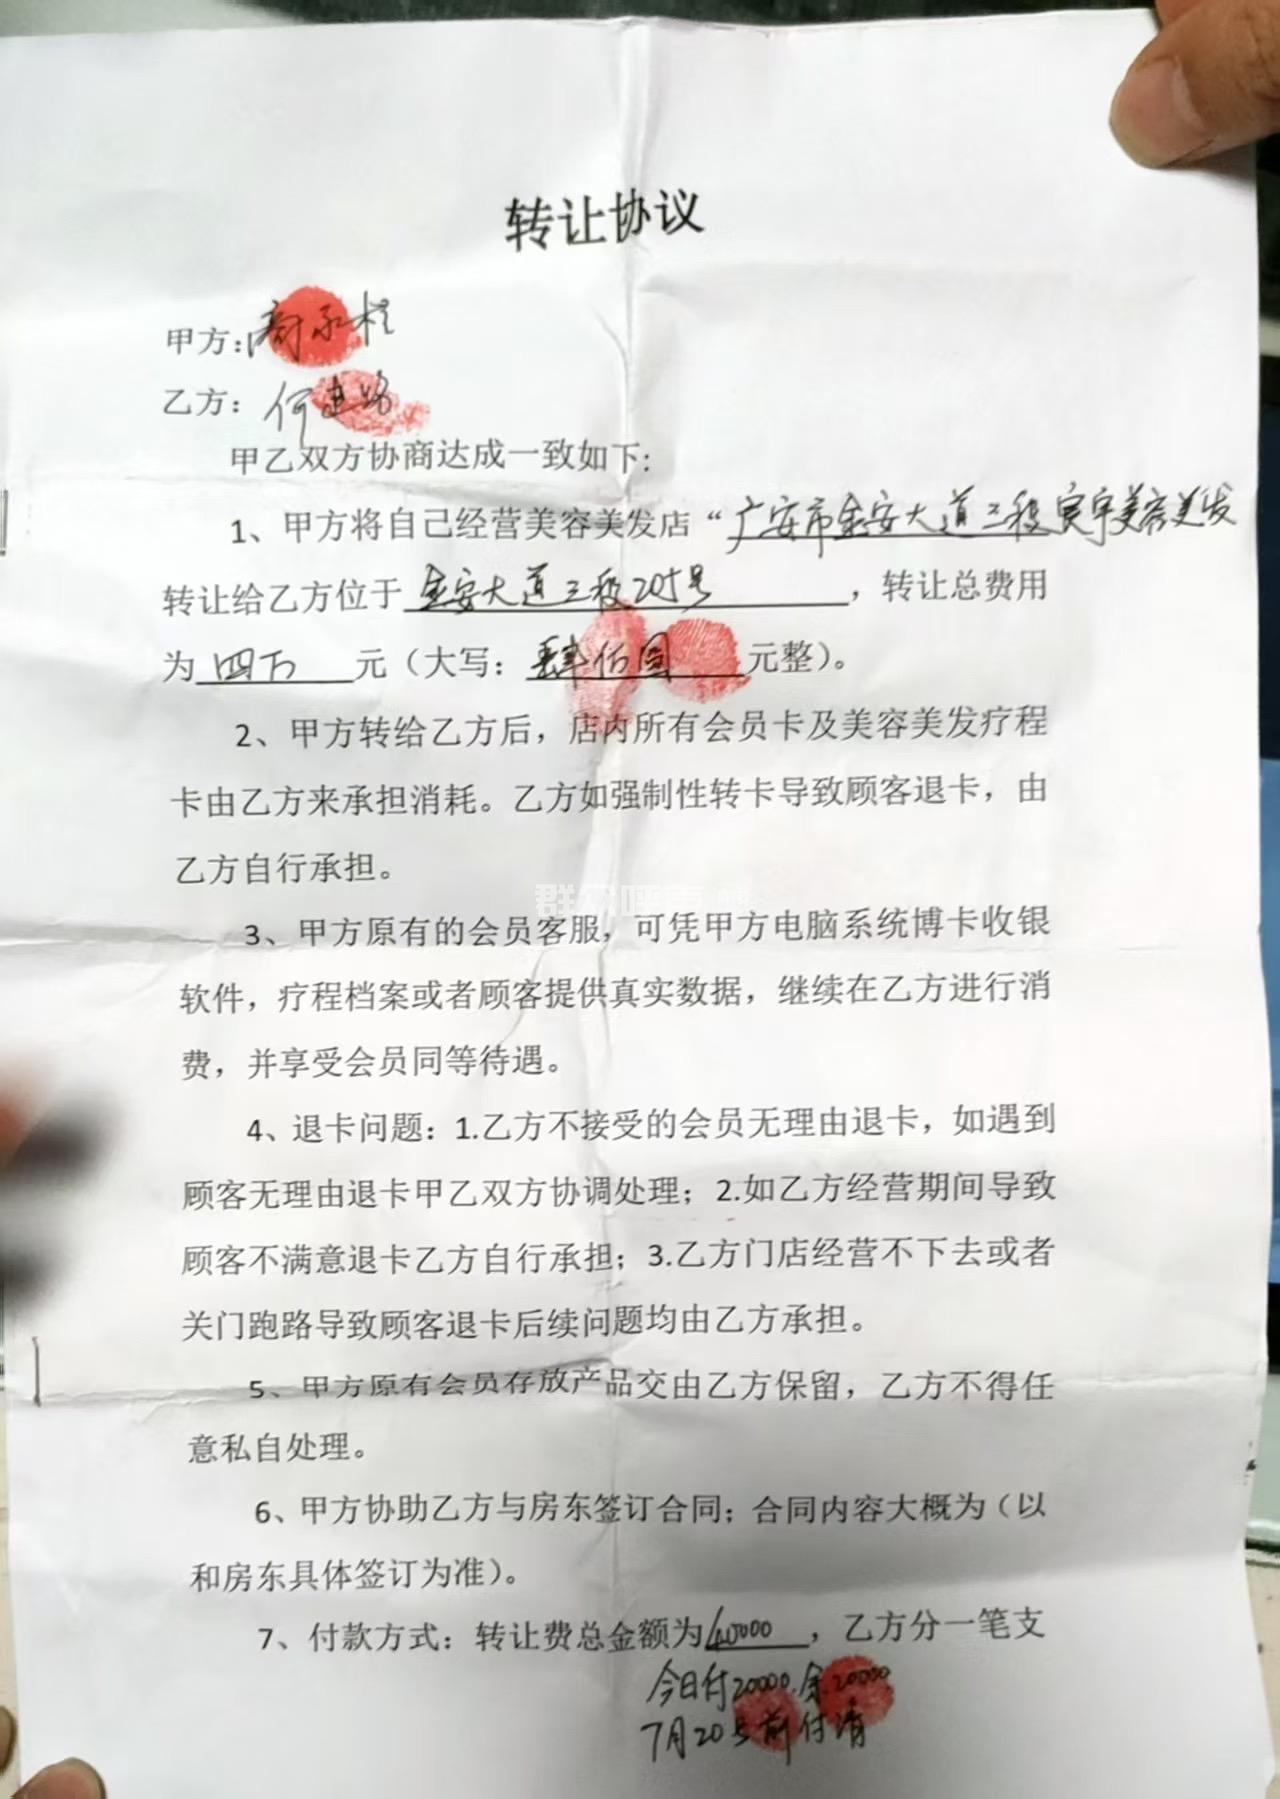 转让协议
甲方:
乙方: 何建路
甲乙双方协商达成一致如下:
1、甲方将自己经营美容美发店“广安市金安大道三段寅宇美容美发
转让给乙方位于金安大道三段205号，转让总费用
为四万元（大写：肆佰圆元整）。
2、甲方转给乙方后，店内所有会员卡及美容美发疗程
卡由乙方来承担消耗。乙方如强制性转卡导致顾客退卡，由
乙方自行承担。
群众呼声
3、甲方原有的会员客服，可凭甲方电脑系统博卡收银
软件，疗程档案或者顾客提供真实数据，继续在乙方进行消
费，并享受会员同等待遇。
4、退卡问题：1.乙方不接受的会员无理由退卡，如遇到
顾客无理由退卡甲乙双方协调处理；2.如乙方经营期间导致
顾客不满意退卡乙方自行承担；3.乙方门店经营不下去或者
关门跑路导致顾客退卡后续问题均由乙方承担。
5、甲方原有会员存放产品交由乙方保留，乙方不得任
意私自处理。
6、甲方协助乙方与房东签订合同；合同内容大概为（以
和房东具体签订为准）。
7、付款方式：转让费总金额为40000，乙方分一笔支
今日付20000.余20000
7月20号前付清